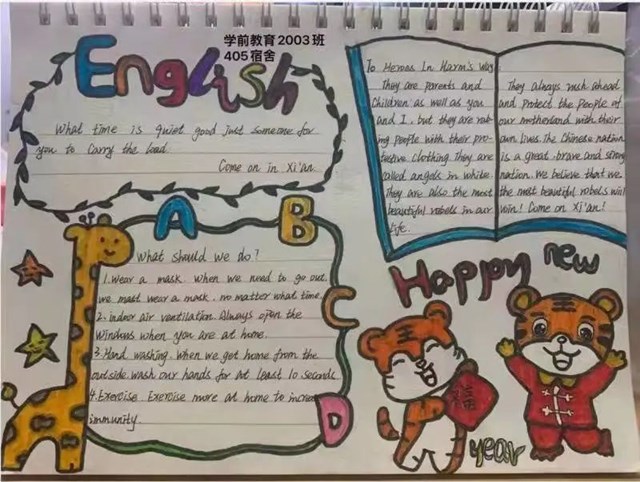 学前教育2003班
405宿舍
English
What time is quiet good just someone for
you to carry the load.
Come on in Xi'an
To Heroes In Harm's Way
They are parents and
Children as well as you
and I. but they are
ing people with their pro-
tective clothing They are
called angels in white.
They are also the most
beautiful rebels in our
life.
They always rush ahead
and protect the people of
our motherland with their
own lives. The Chinese nation
is a great. brave and strong
nation. We believe that we
the most beautiful rebels will
win! Come on Xi'an!
A
B
C
D
What should we do?
1. Wear a mask. When we need to go out.
we mast wear a mask. no matter what time.
2. Indoor air ventilation. Always open the
Windows when you are at home.
3. Hand washing. When we get home from the
outside wash our hands for at least 10 seconds
4. Exercise. Exercise more at home to increse
immunity.
Happy new
福
year